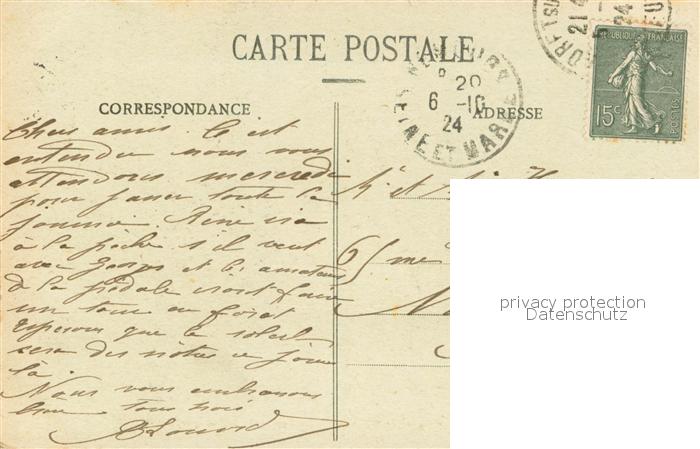 CARTE POSTALE
CORRESPONDANCE
ADRESSE
REPUBLIQUE FRANÇAISE
15c
POSTES
20
6 -10
24
SEINE ET MARNE
21
24
Chers amis. C'est
entendu nous vous
attendons mercredi
pour passer toute la
journée. René ira
à la pêche s'il veut
avec Georges et les amateurs
de la pédale iront faire
un tour en forêt
esperons que le soleil
sera des notres ce jour
là.
Nous vous embrassons
bien tous trois
M et
65
privacy protection
Datenschutz